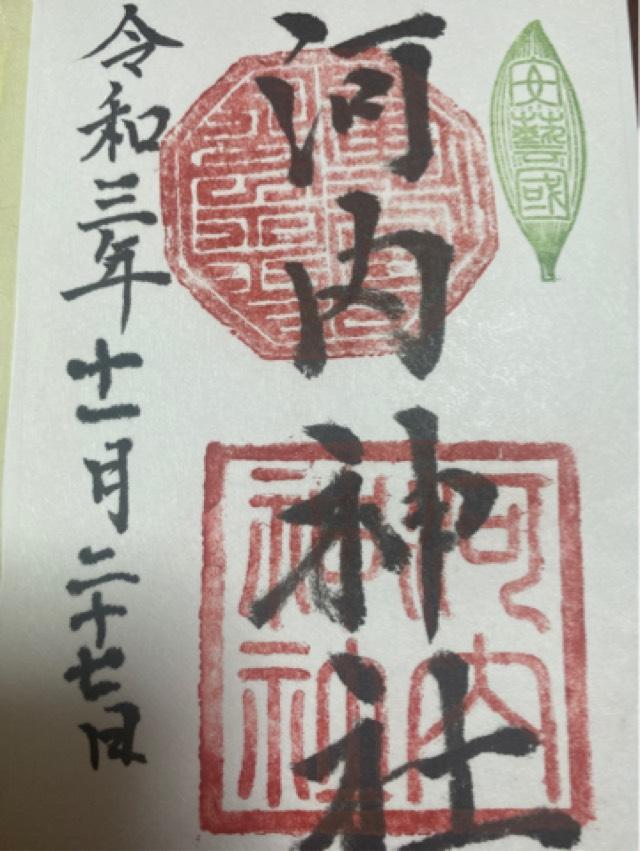 安藝國
河内神社
河内
神社
令和三年十一月二十七日